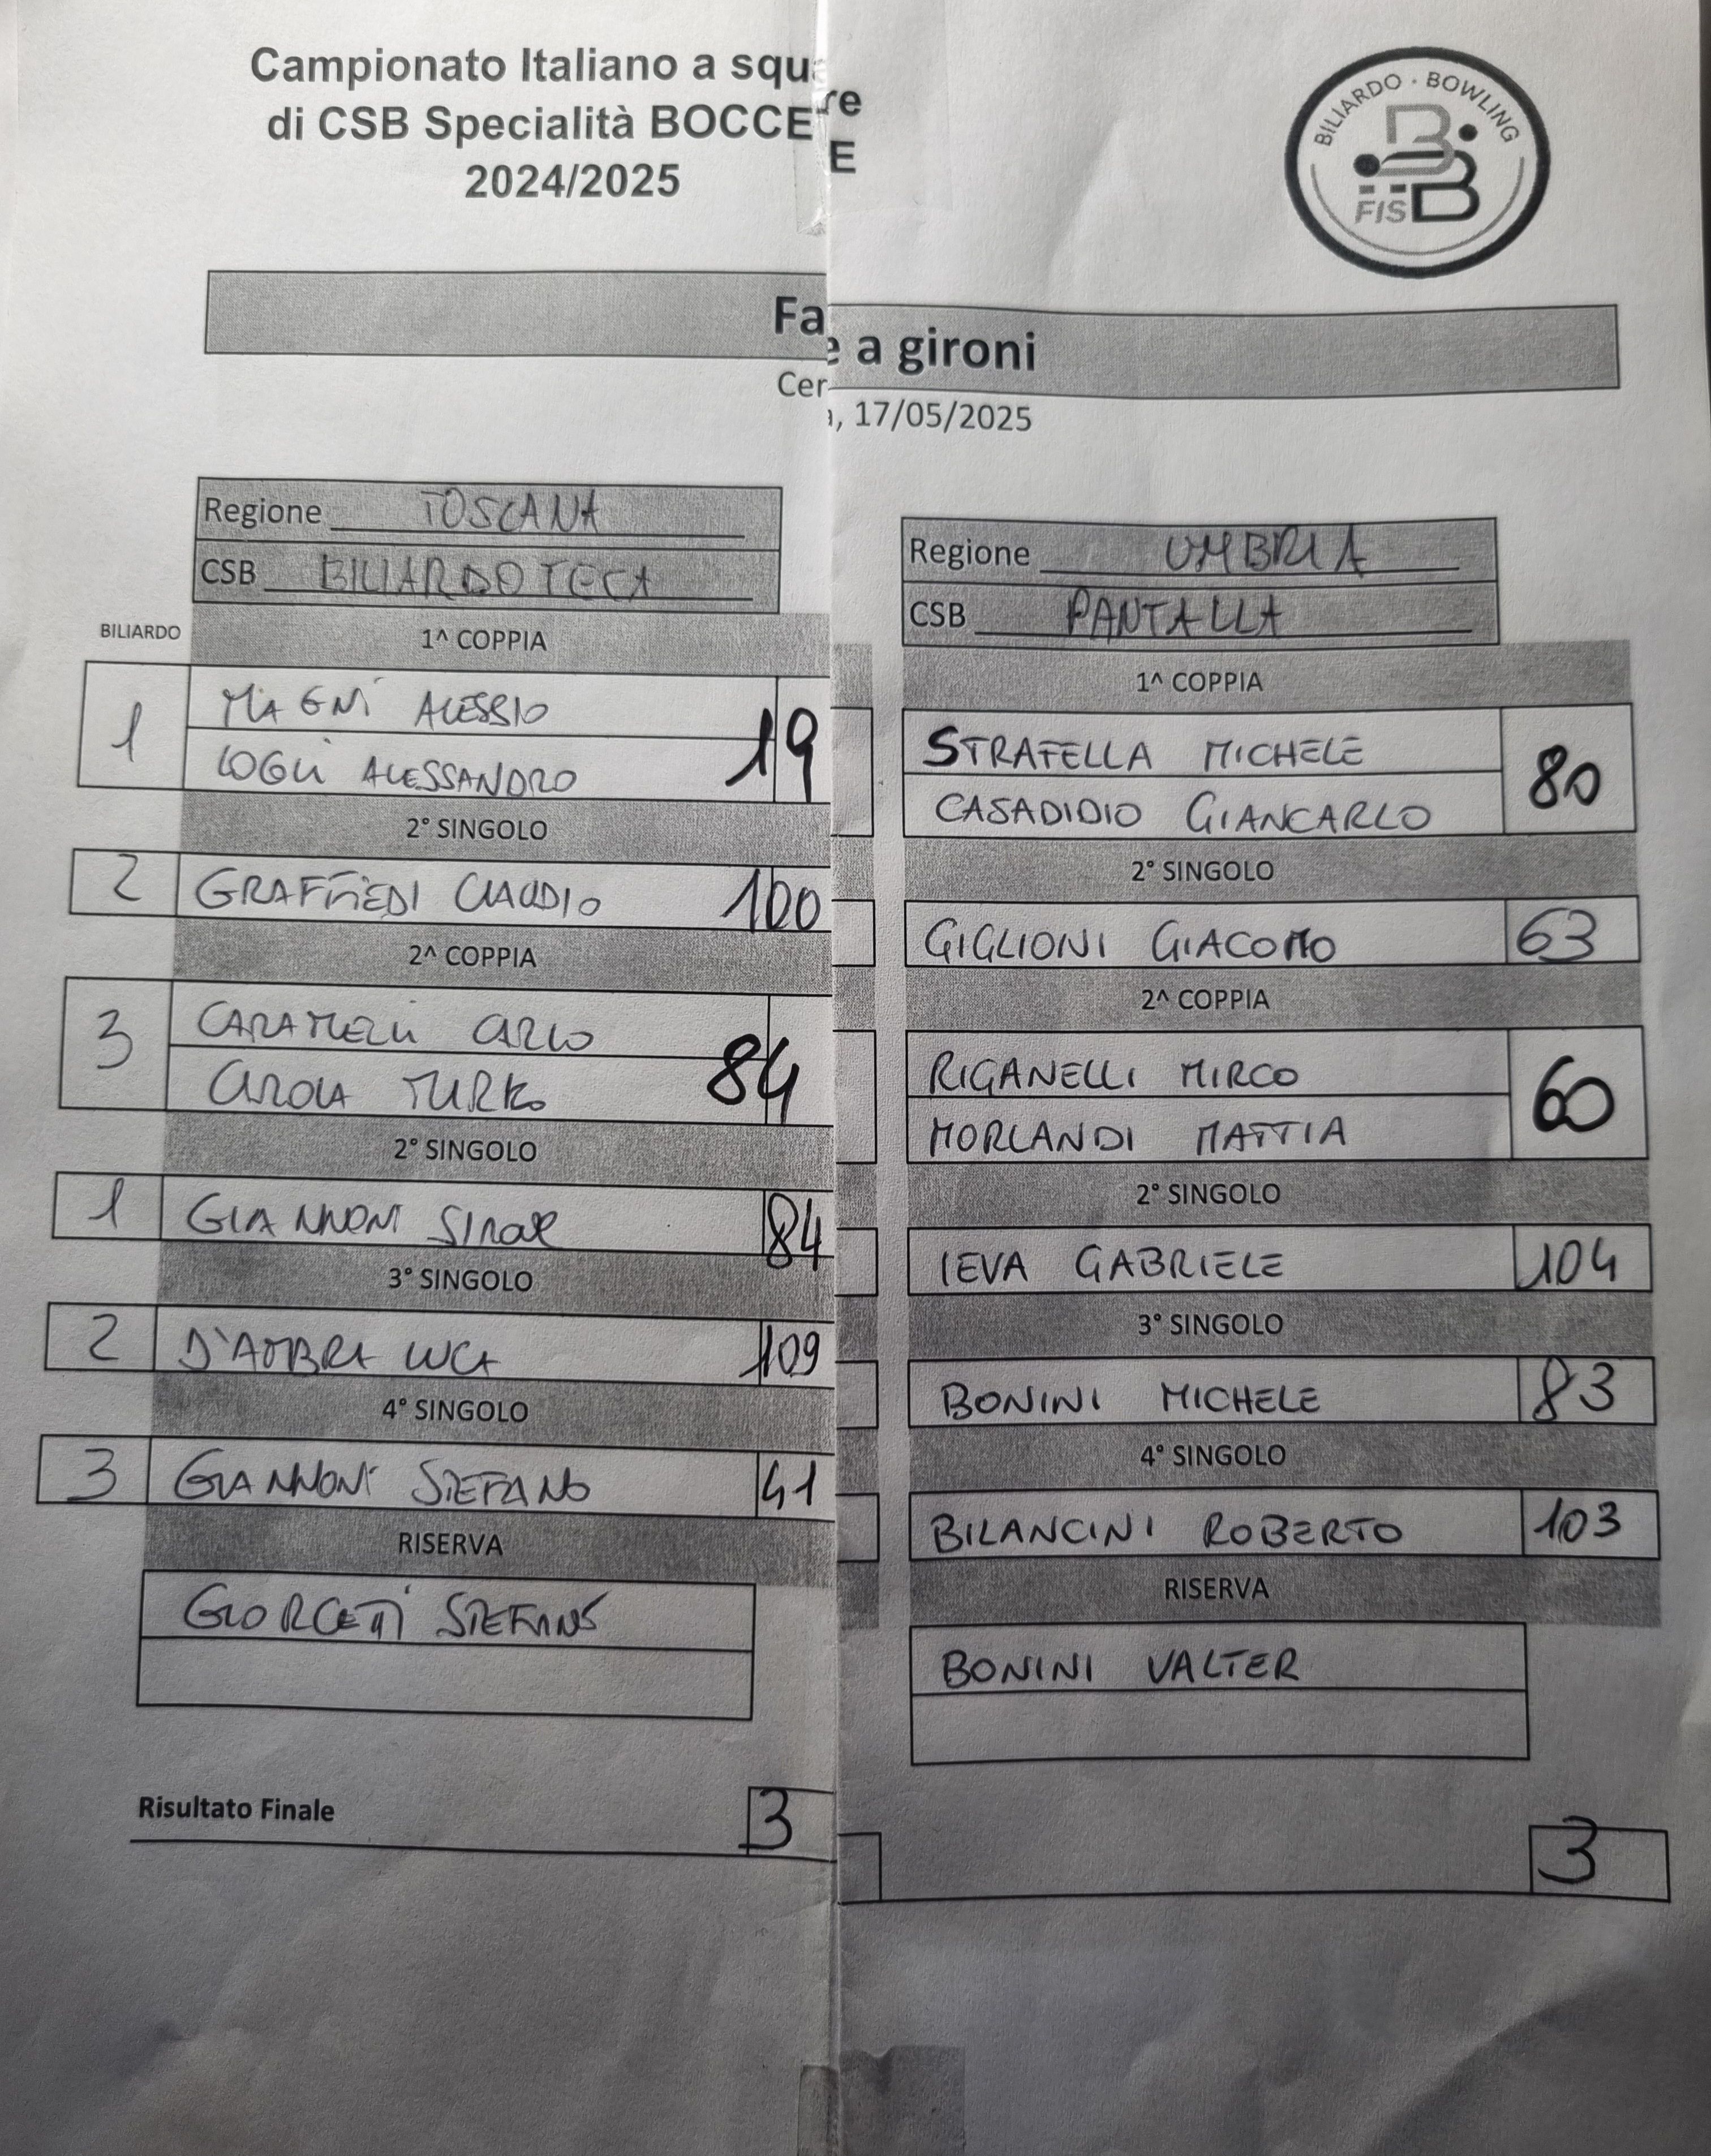 Campionato Italiano a squ re
di CSB Specialità BOCCE E
2024/2025
BILIARDO · BOWLING
FISBB
Fa e a gironi
Cer a, 17/05/2025
Regione TOSCANA
CSB BILIARDOTECA
BILIARDO
1^ COPPIA
1 MAGNI ALESSIO 19
LOGLI ALESSANDRO
2° SINGOLO
2 GRAFFIEDI CLAUDIO 100
2^ COPPIA
3 CARAMELLI CARLO 84
CAROLA MIRKO
2° SINGOLO
1 GIANNONI SIMONE 84
3° SINGOLO
2 D'AMBRA LUCA 109
4° SINGOLO
3 GIANNONI STEFANO 41
RISERVA
GIORGETTI STEFANO
Risultato Finale 3
Regione UMBRIA
CSB PANTALLA
1^ COPPIA
STRAFELLA MICHELE 80
CASADIDIO GIANCARLO
2° SINGOLO
GIGLIONI GIACOMO 63
2^ COPPIA
RIGANELLI MIRCO 60
MORLANDI MATTIA
2° SINGOLO
IEVA GABRIELE 104
3° SINGOLO
BONINI MICHELE 83
4° SINGOLO
BILANCINI ROBERTO 103
RISERVA
BONINI VALTER
3